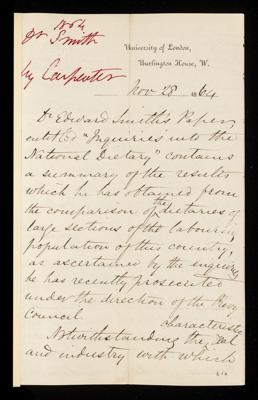 Dr Smith
by Carpenter
University of London,
Burlington House, W.
Nov 28 1864
Dr Edward Smith's Paper
entitled "Inquiries into the
National Dietary" contains
a summary of the results
which he has obtained from
the comparison of the dietaries of
large sections of the labouring
population of this country,
as ascertained by the inquiries
he has recently prosecuted
under the direction of the Privy
Council.
Notwithstanding the characteristic zeal
and industry with which